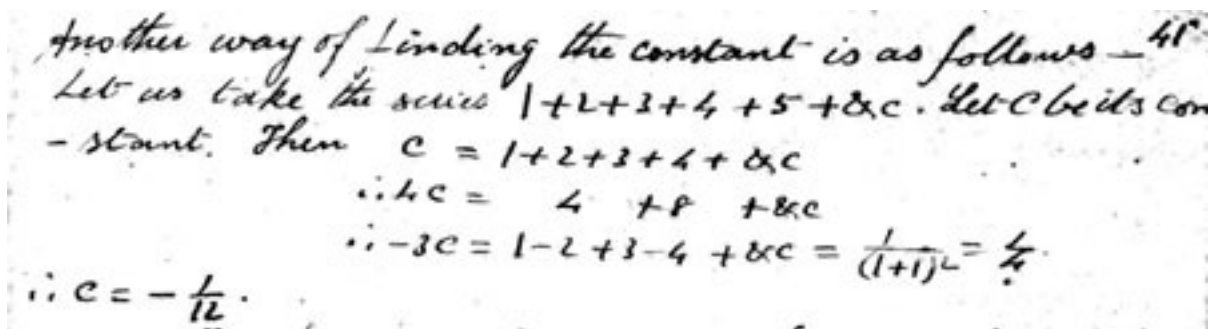 Another way of finding the constant is as follows — 41
Let us take the series 1+2+3+4+5+&c. Let C be its con
- stant. Then c = 1+2+3+4+&c
∴ 4c = 4 +8 +&c
∴ -3c = 1-2+3-4+&c = 1/(1+1)² = 1/4.
∴ c = - 1/12.